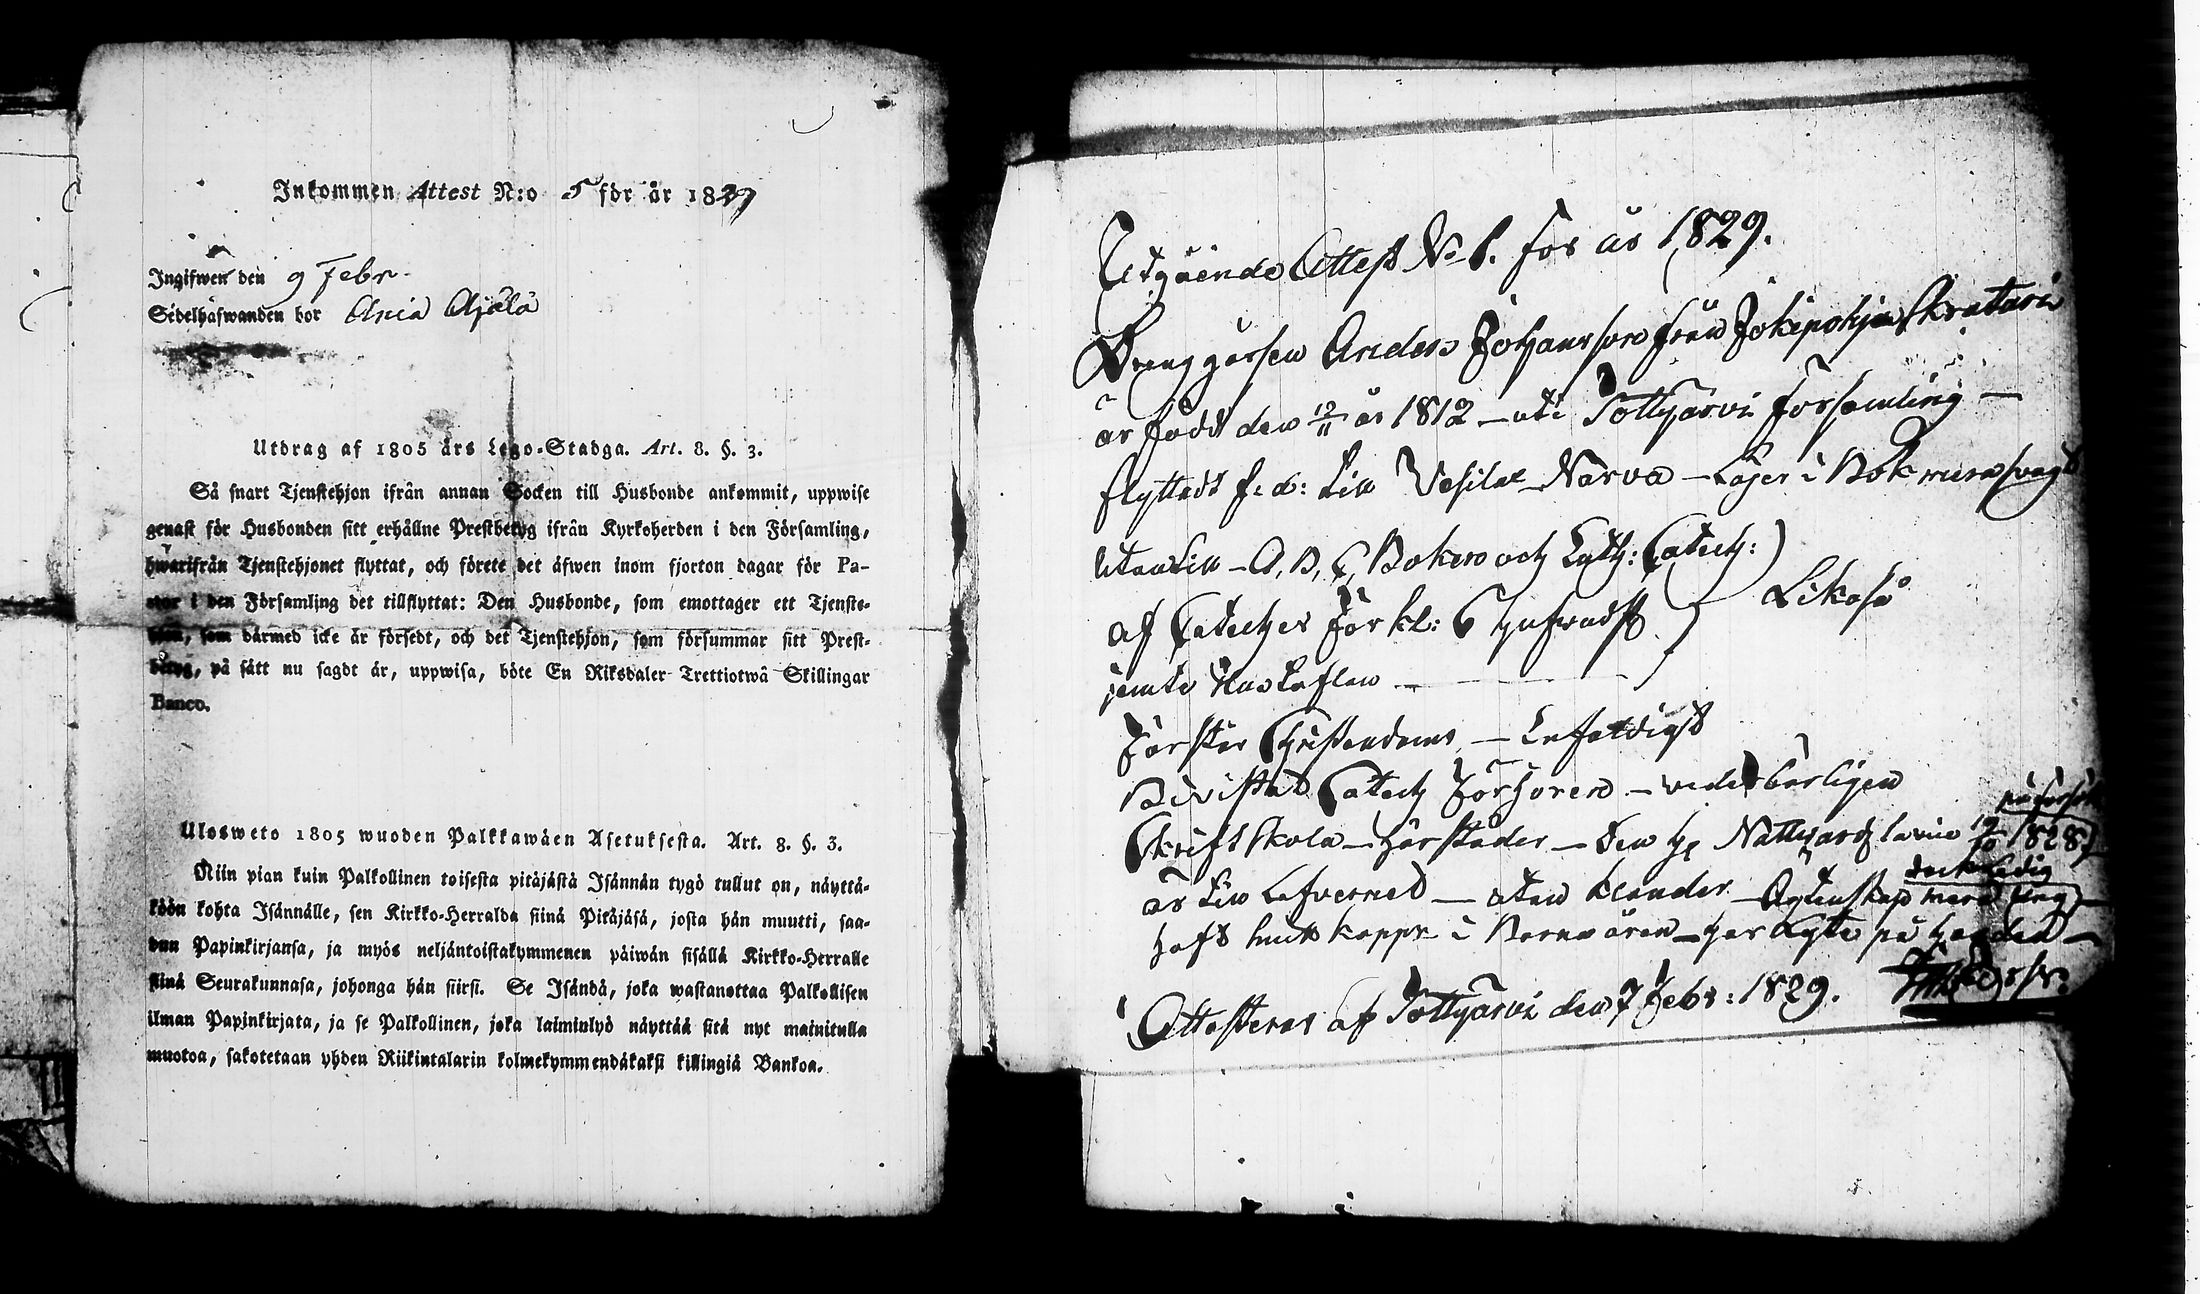 Inkommen Attest N:o 5 för år 1829
Ingifwen den 9 Febr.
Sedelhafwanden bor Ania Ajälä
Utdrag af 1805 års Lego-Stadga. Art. 8. §. 3.
Så snart Tjenstehjon ifrån annan Socken till Husbonde ankommit, uppwise
genast för Husbonden sitt erhållne Prestbetyg ifrån Kyrkoherden i den Församling,
hwarifrån Tjenstehjonet flyttat, och förete det äfwen inom fjorton dagar för Pa-
stor i den Församling det tillflyttat: Den Husbonde, som emottager ett Tjenste-
hjon, som därmed icke är försedt, och det Tjenstehjon, som försummar sitt Prest-
betyg, på sätt nu sagdt är, uppwisa, böte En Riksdaler Trettiotwå Skillingar
Banco.
Ulosweto 1805 wuoden Palkkawäen Asetuksesta. Art. 8. §. 3.
Niin pian kuin Palkollinen toisesta pitäjästä Isännän tygö tullut on, näyttä-
köön kohta Isännälle, sen Kirkko-Herralda siinä Pitäjäsä, josta hän muutti, saa-
dun Papinkirjansa, ja myös neljäntoistakymmenen päiwän sisällä Kirkko-Herralle
siinä Seurakunnasa, johonga hän siirsi. Se Isändä, joka wastanottaa Palkollisen
ilman Papinkirjata, ja se Palkollinen, joka laiminlyö näyttää sitä nyt mainitulla
muotoa, sakotetaan yhden Riikintalarin kolmekymmendäkaksi killingiä Bankoa.
Utgående Attest No 6. för år 1829.
Dreng gossen Anders Johansson från Jokipohja Skratari
är född den 12/11 år 1812 – uti Tottijärvi församling –
flyttadt f. d: till Vesilax Narva – Läser i Bok
utantill – A, B, C, Boken och Luth: Catech:
af Catechis Förkl: 6 hufvudst } Likaså
jemte Hustaflan –
Förstår Christendoms – Enfaldigt
Bevistat Catech Förhören – vederbörligen
Skriftskola – härstädes – den H. Nattvard 19/10 1828
är till Lefvernet – utan klander – Ägtenskap ledig
haft kopper i Barna åren – har lyte på
Attesteras af Tottijärvi den 7 Febr: 1829.